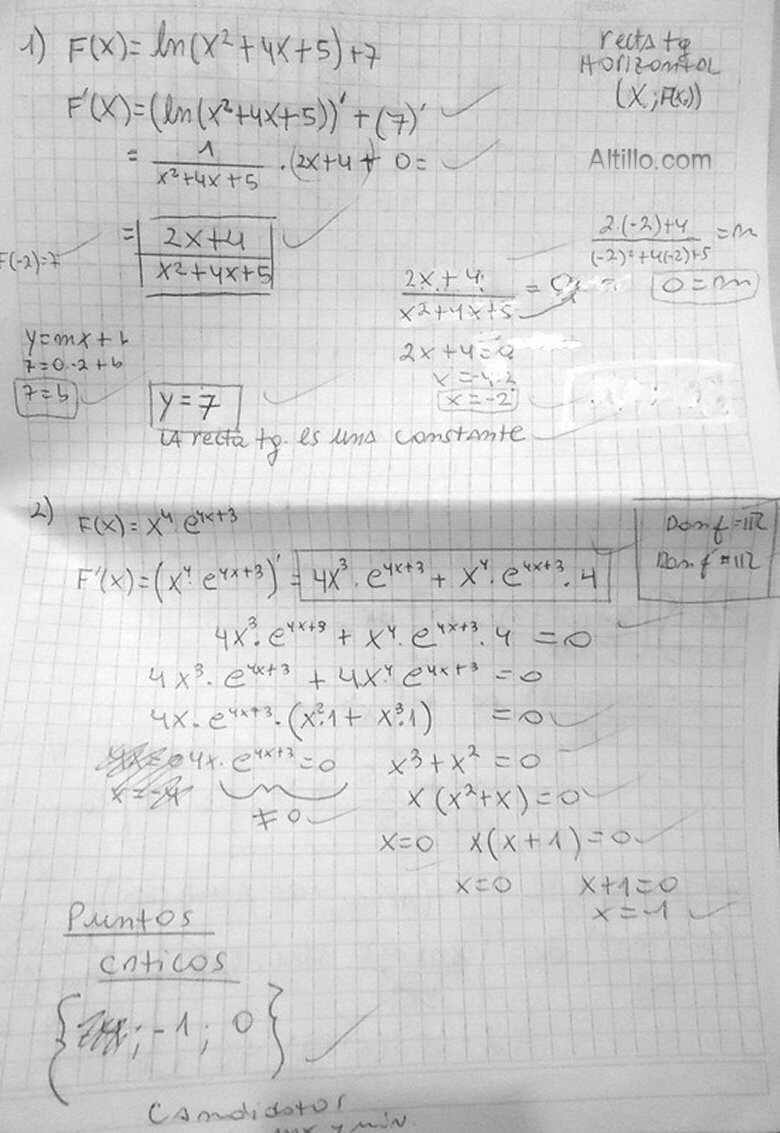 1) F(x) = ln(x² + 4x + 5) + 7
recta tg
Horizontal
(X ; F(x))
F'(x) = (ln(x² + 4x + 5))' + (7)'
= 1/(x² + 4x + 5) · (2x + 4) + 0 =
Altillo.com
= (2x + 4)/(x² + 4x + 5)
(2·(-2) + 4)/((-2)² + 4(-2) + 5) = m
0 = m
F(-2) = 7
(2x + 4)/(x² + 4x + 5) = 0
2x + 4 = 0
x = -4:2
x = -2
y = mx + b
7 = 0·-2 + b
7 = b
y = 7
LA recta tg. es una constante
2) F(x) = x⁴ e^(4x+3)
Dom f = IR
Dom f' = IR
F'(x) = (x⁴· e^(4x+3))' = 4x³ · e^(4x+3) + x⁴ · e^(4x+3) · 4
4x³ · e^(4x+3) + x⁴ · e^(4x+3) · 4 = 0
4x³ · e^(4x+3) + 4x⁴ · e^(4x+3) = 0
4x · e^(4x+3) · (x²·1 + x³·1) = 0
4x · e^(4x+3) = 0
≠ 0
x³ + x² = 0
x (x² + x) = 0
x = 0 x(x + 1) = 0
x = 0 x + 1 = 0
x = -1
Puntos
criticos
{ ; -1 ; 0 }
Candidatos
y min.